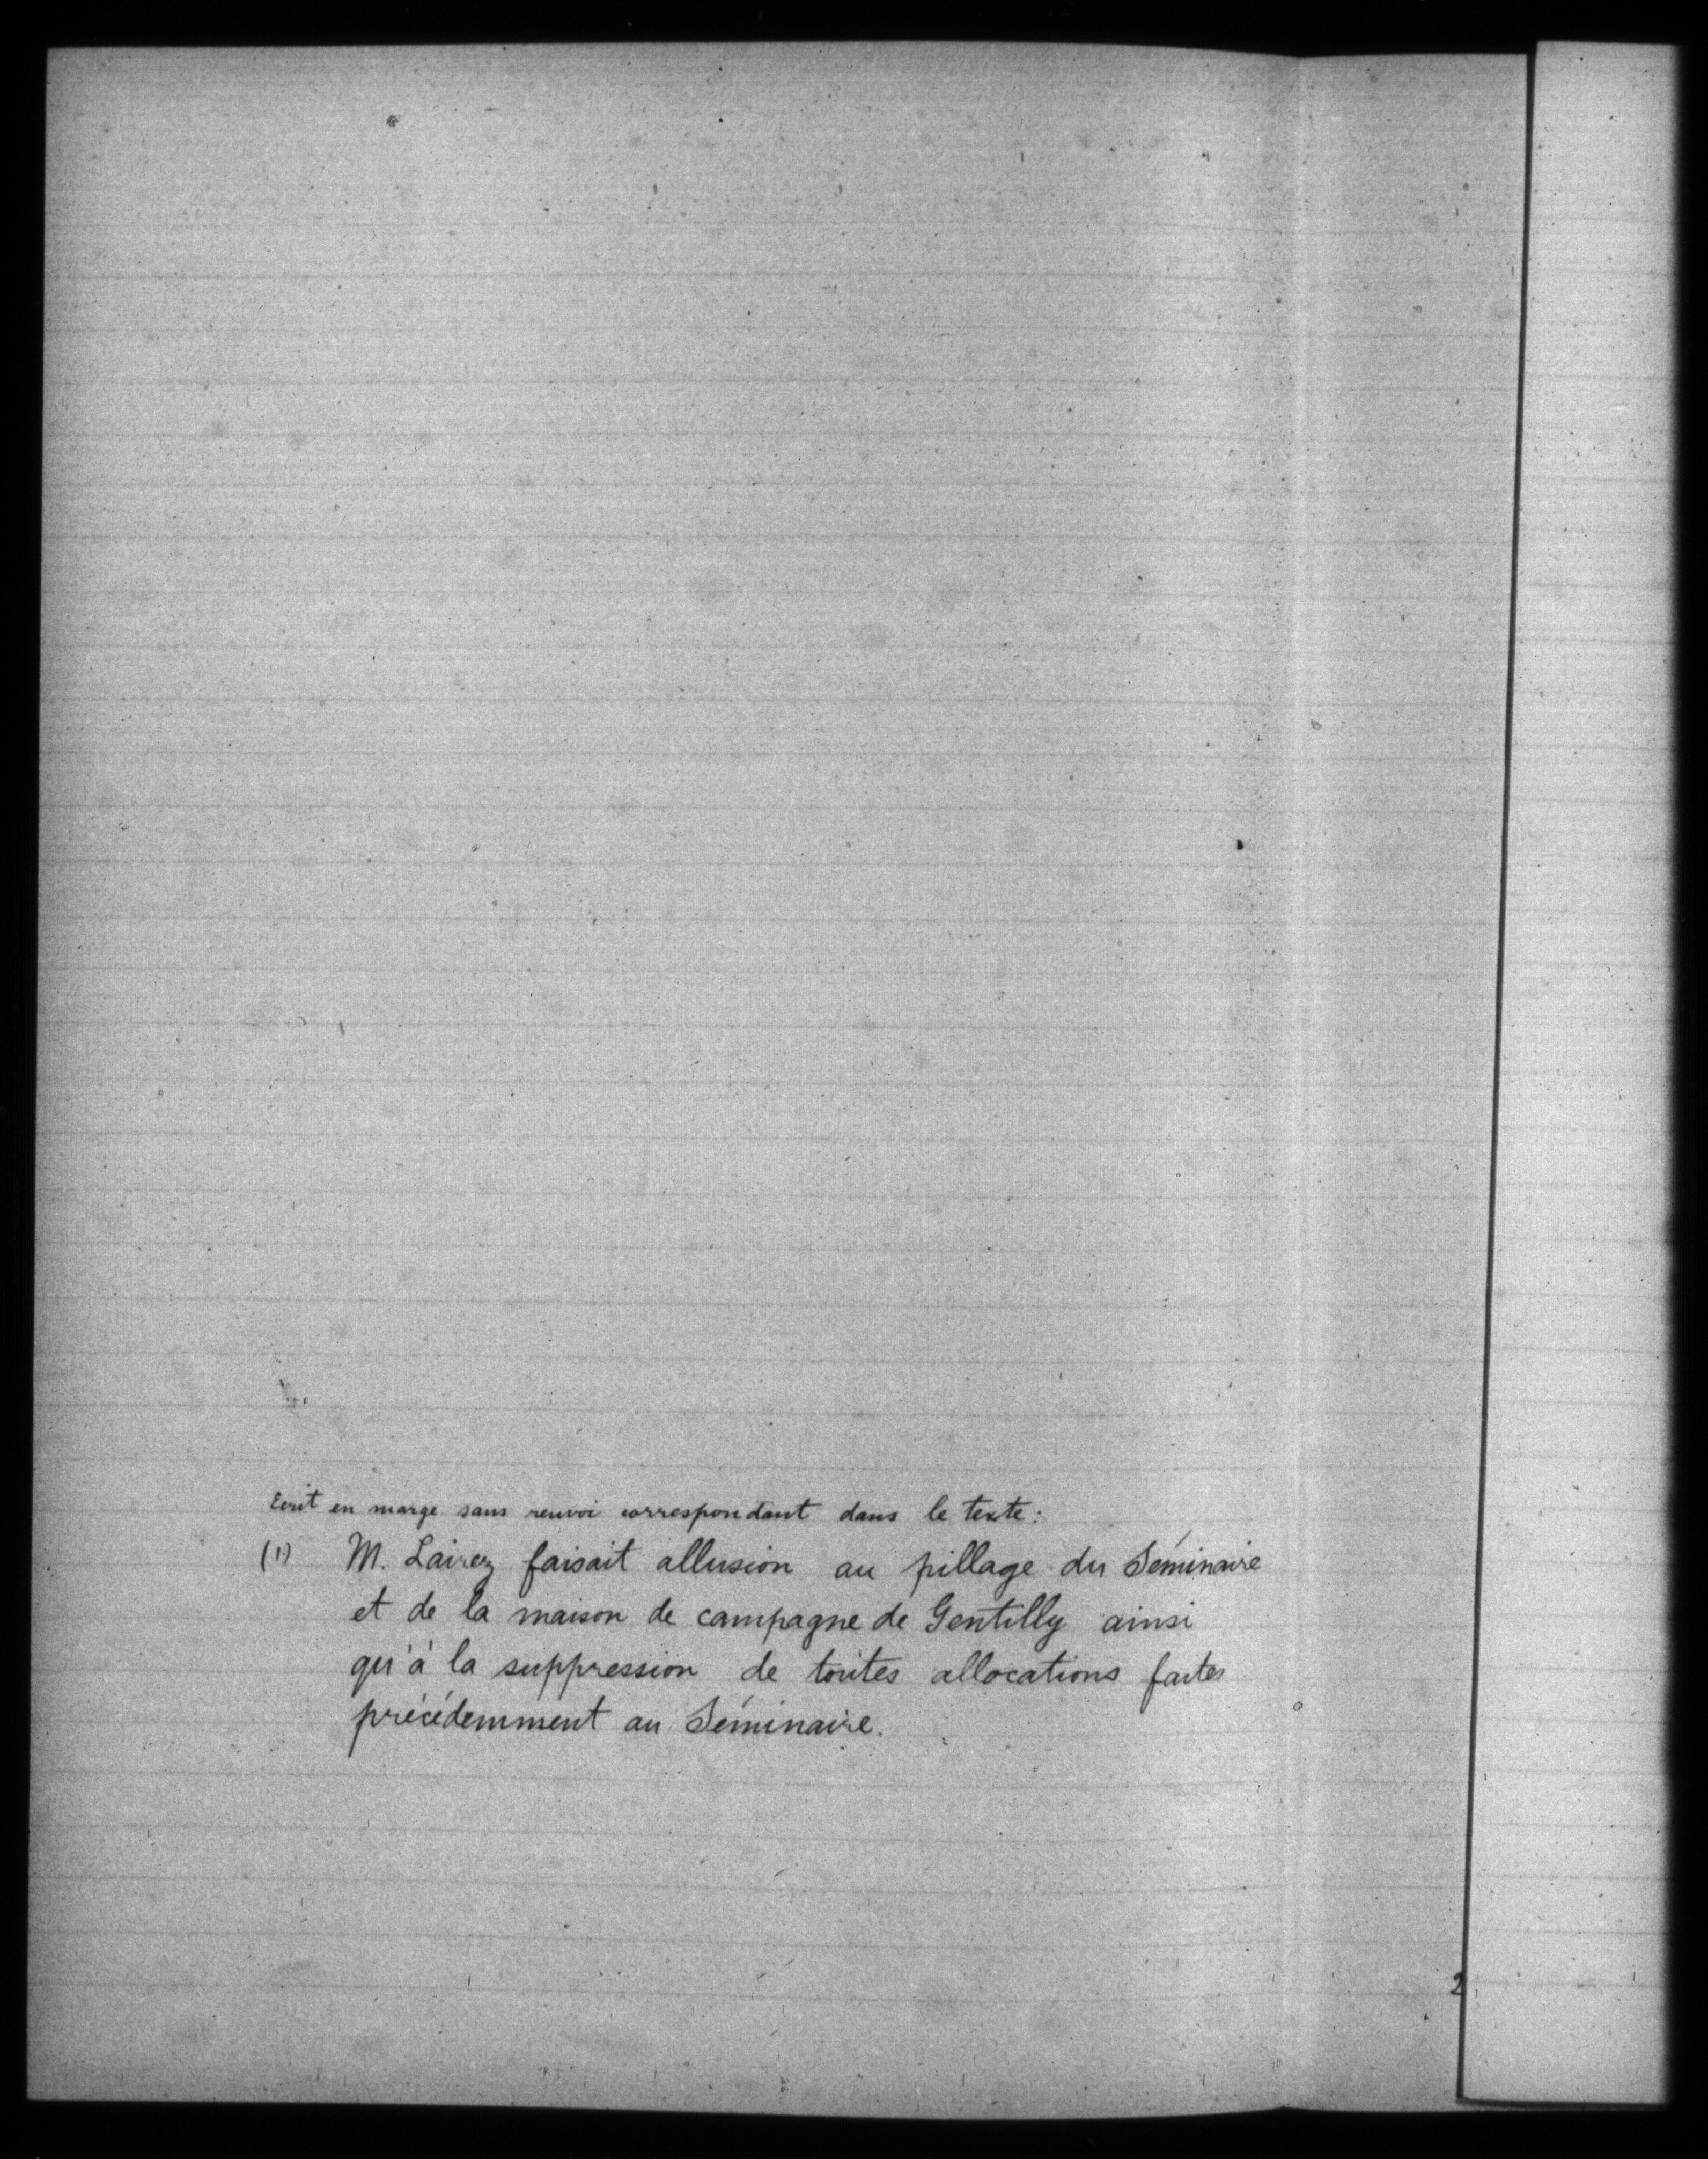 Ecrit en marge sans renvoi correspondant dans le texte:
(1) M. Lairez faisait allusion au pillage du Séminaire
et de la maison de campagne de Gentilly ainsi
qu'à la suppression de toutes allocations faites
précédemment au Séminaire.
2